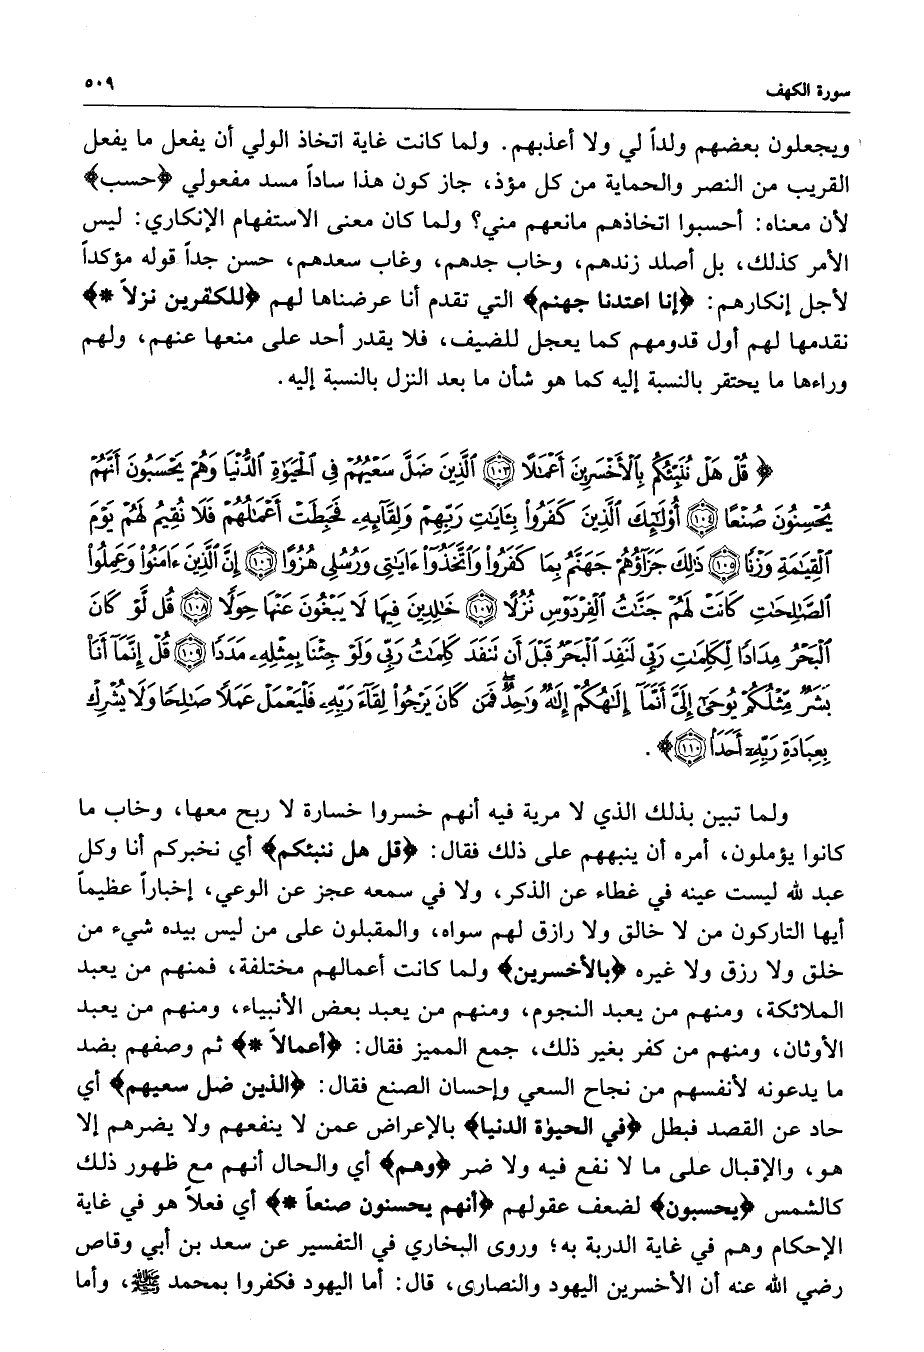 سورة الكهف ٥٠٩
ويجعلون بعضهم ولداً لي ولا أعذبهم. ولما كانت غاية اتخاذ الولي أن يفعل ما يفعل
القريب من النصر والحماية من كل مؤذ، جاز كون هذا ساداً مسد مفعولي ﴿حسب﴾
لأن معناه: أحسبوا اتخاذهم مانعهم مني؟ ولما كان معنى الاستفهام الإنكاري: ليس
الأمر كذلك، بل أصلد زندهم، وخاب جدهم، وغاب سعدهم، حسن جداً قوله مؤكداً
لأجل إنكارهم: ﴿إنا اعتدنا جهنم﴾ التي تقدم أنا عرضناها لهم ﴿للكفرين نزلاً *﴾
نقدمها لهم أول قدومهم كما يعجل للضيف، فلا يقدر أحد على منعها عنهم، ولهم
وراءها ما يحتقر بالنسبة إليه كما هو شأن ما بعد النزل بالنسبة إليه.
﴿ قُلْ هَلْ نُنَبِّئُكُم بِالْأَخْسَرِينَ أَعْمَالًا ۝١٠٣ الَّذِينَ ضَلَّ سَعْيُهُمْ فِي الْحَيَوٰةِ الدُّنْيَا وَهُمْ يَحْسَبُونَ أَنَّهُمْ
يُحْسِنُونَ صُنْعًا ۝١٠٤ أُوْلَٰٓئِكَ الَّذِينَ كَفَرُوا۟ بِـَٔايَٰتِ رَبِّهِمْ وَلِقَآئِهِۦ فَحَبِطَتْ أَعْمَٰلُهُمْ فَلَا نُقِيمُ لَهُمْ يَوْمَ
الْقِيَٰمَةِ وَزْنًا ۝١٠٥ ذَٰلِكَ جَزَآؤُهُمْ جَهَنَّمُ بِمَا كَفَرُوا۟ وَاتَّخَذُوٓا۟ ءَايَٰتِي وَرُسُلِي هُزُوًا ۝١٠٦ إِنَّ الَّذِينَ ءَامَنُوا۟ وَعَمِلُوا۟
الصَّٰلِحَٰتِ كَانَتْ لَهُمْ جَنَّٰتُ الْفِرْدَوْسِ نُزُلًا ۝١٠٧ خَٰلِدِينَ فِيهَا لَا يَبْغُونَ عَنْهَا حِوَلًا ۝١٠٨ قُل لَّوْ كَانَ
الْبَحْرُ مِدَادًا لِّكَلِمَٰتِ رَبِّي لَنَفِدَ الْبَحْرُ قَبْلَ أَن تَنفَدَ كَلِمَٰتُ رَبِّي وَلَوْ جِئْنَا بِمِثْلِهِۦ مَدَدًا ۝١٠٩ قُلْ إِنَّمَآ أَنَا۠
بَشَرٌ مِّثْلُكُمْ يُوحَىٰٓ إِلَيَّ أَنَّمَآ إِلَٰهُكُمْ إِلَٰهٌ وَٰحِدٌ ۖ فَمَن كَانَ يَرْجُوا۟ لِقَآءَ رَبِّهِۦ فَلْيَعْمَلْ عَمَلًا صَٰلِحًا وَلَا يُشْرِكْ
بِعِبَادَةِ رَبِّهِۦٓ أَحَدًۢا ۝١١٠﴾ .
ولما تبين بذلك الذي لا مرية فيه أنهم خسروا خسارة لا ربح معها، وخاب ما
كانوا يؤملون، أمره أن ينبههم على ذلك فقال: ﴿قل هل ننبئكم﴾ أي نخبركم أنا وكل
عبد لله ليست عينه في غطاء عن الذكر، ولا في سمعه عجز عن الوعي، إخباراً عظيماً
أيها التاركون من لا خالق ولا رازق لهم سواه، والمقبلون على من ليس بيده شيء من
خلق ولا رزق ولا غيره ﴿بالأخسرين﴾ ولما كانت أعمالهم مختلفة، فمنهم من يعبد
الملائكة، ومنهم من يعبد النجوم، ومنهم من يعبد بعض الأنبياء، ومنهم من يعبد
الأوثان، ومنهم من كفر بغير ذلك، جمع المميز فقال: ﴿أعمالاً *﴾ ثم وصفهم بضد
ما يدعونه لأنفسهم من نجاح السعي وإحسان الصنع فقال: ﴿الذين ضل سعيهم﴾ أي
حاد عن القصد فبطل ﴿في الحيوٰة الدنيا﴾ بالإعراض عمن لا ينفعهم ولا يضرهم إلا
هو، والإقبال على ما لا نفع فيه ولا ضر ﴿وهم﴾ أي والحال أنهم مع ظهور ذلك
كالشمس ﴿يحسبون﴾ لضعف عقولهم ﴿أنهم يحسنون صنعاً *﴾ أي فعلاً هو في غاية
الإحكام وهم في غاية الدربة به؛ وروى البخاري في التفسير عن سعد بن أبي وقاص
رضي الله عنه أن الأخسرين اليهود والنصارى، قال: أما اليهود فكفروا بمحمد ﷺ، وأما